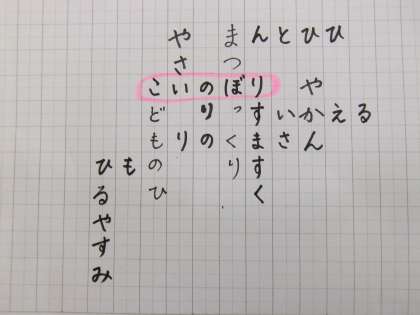 や まんとひひ
さ つ
こいのぼり や
ど りっすいかえる
もりのくまさん
ひもの りす
る ひ く
や
す
み